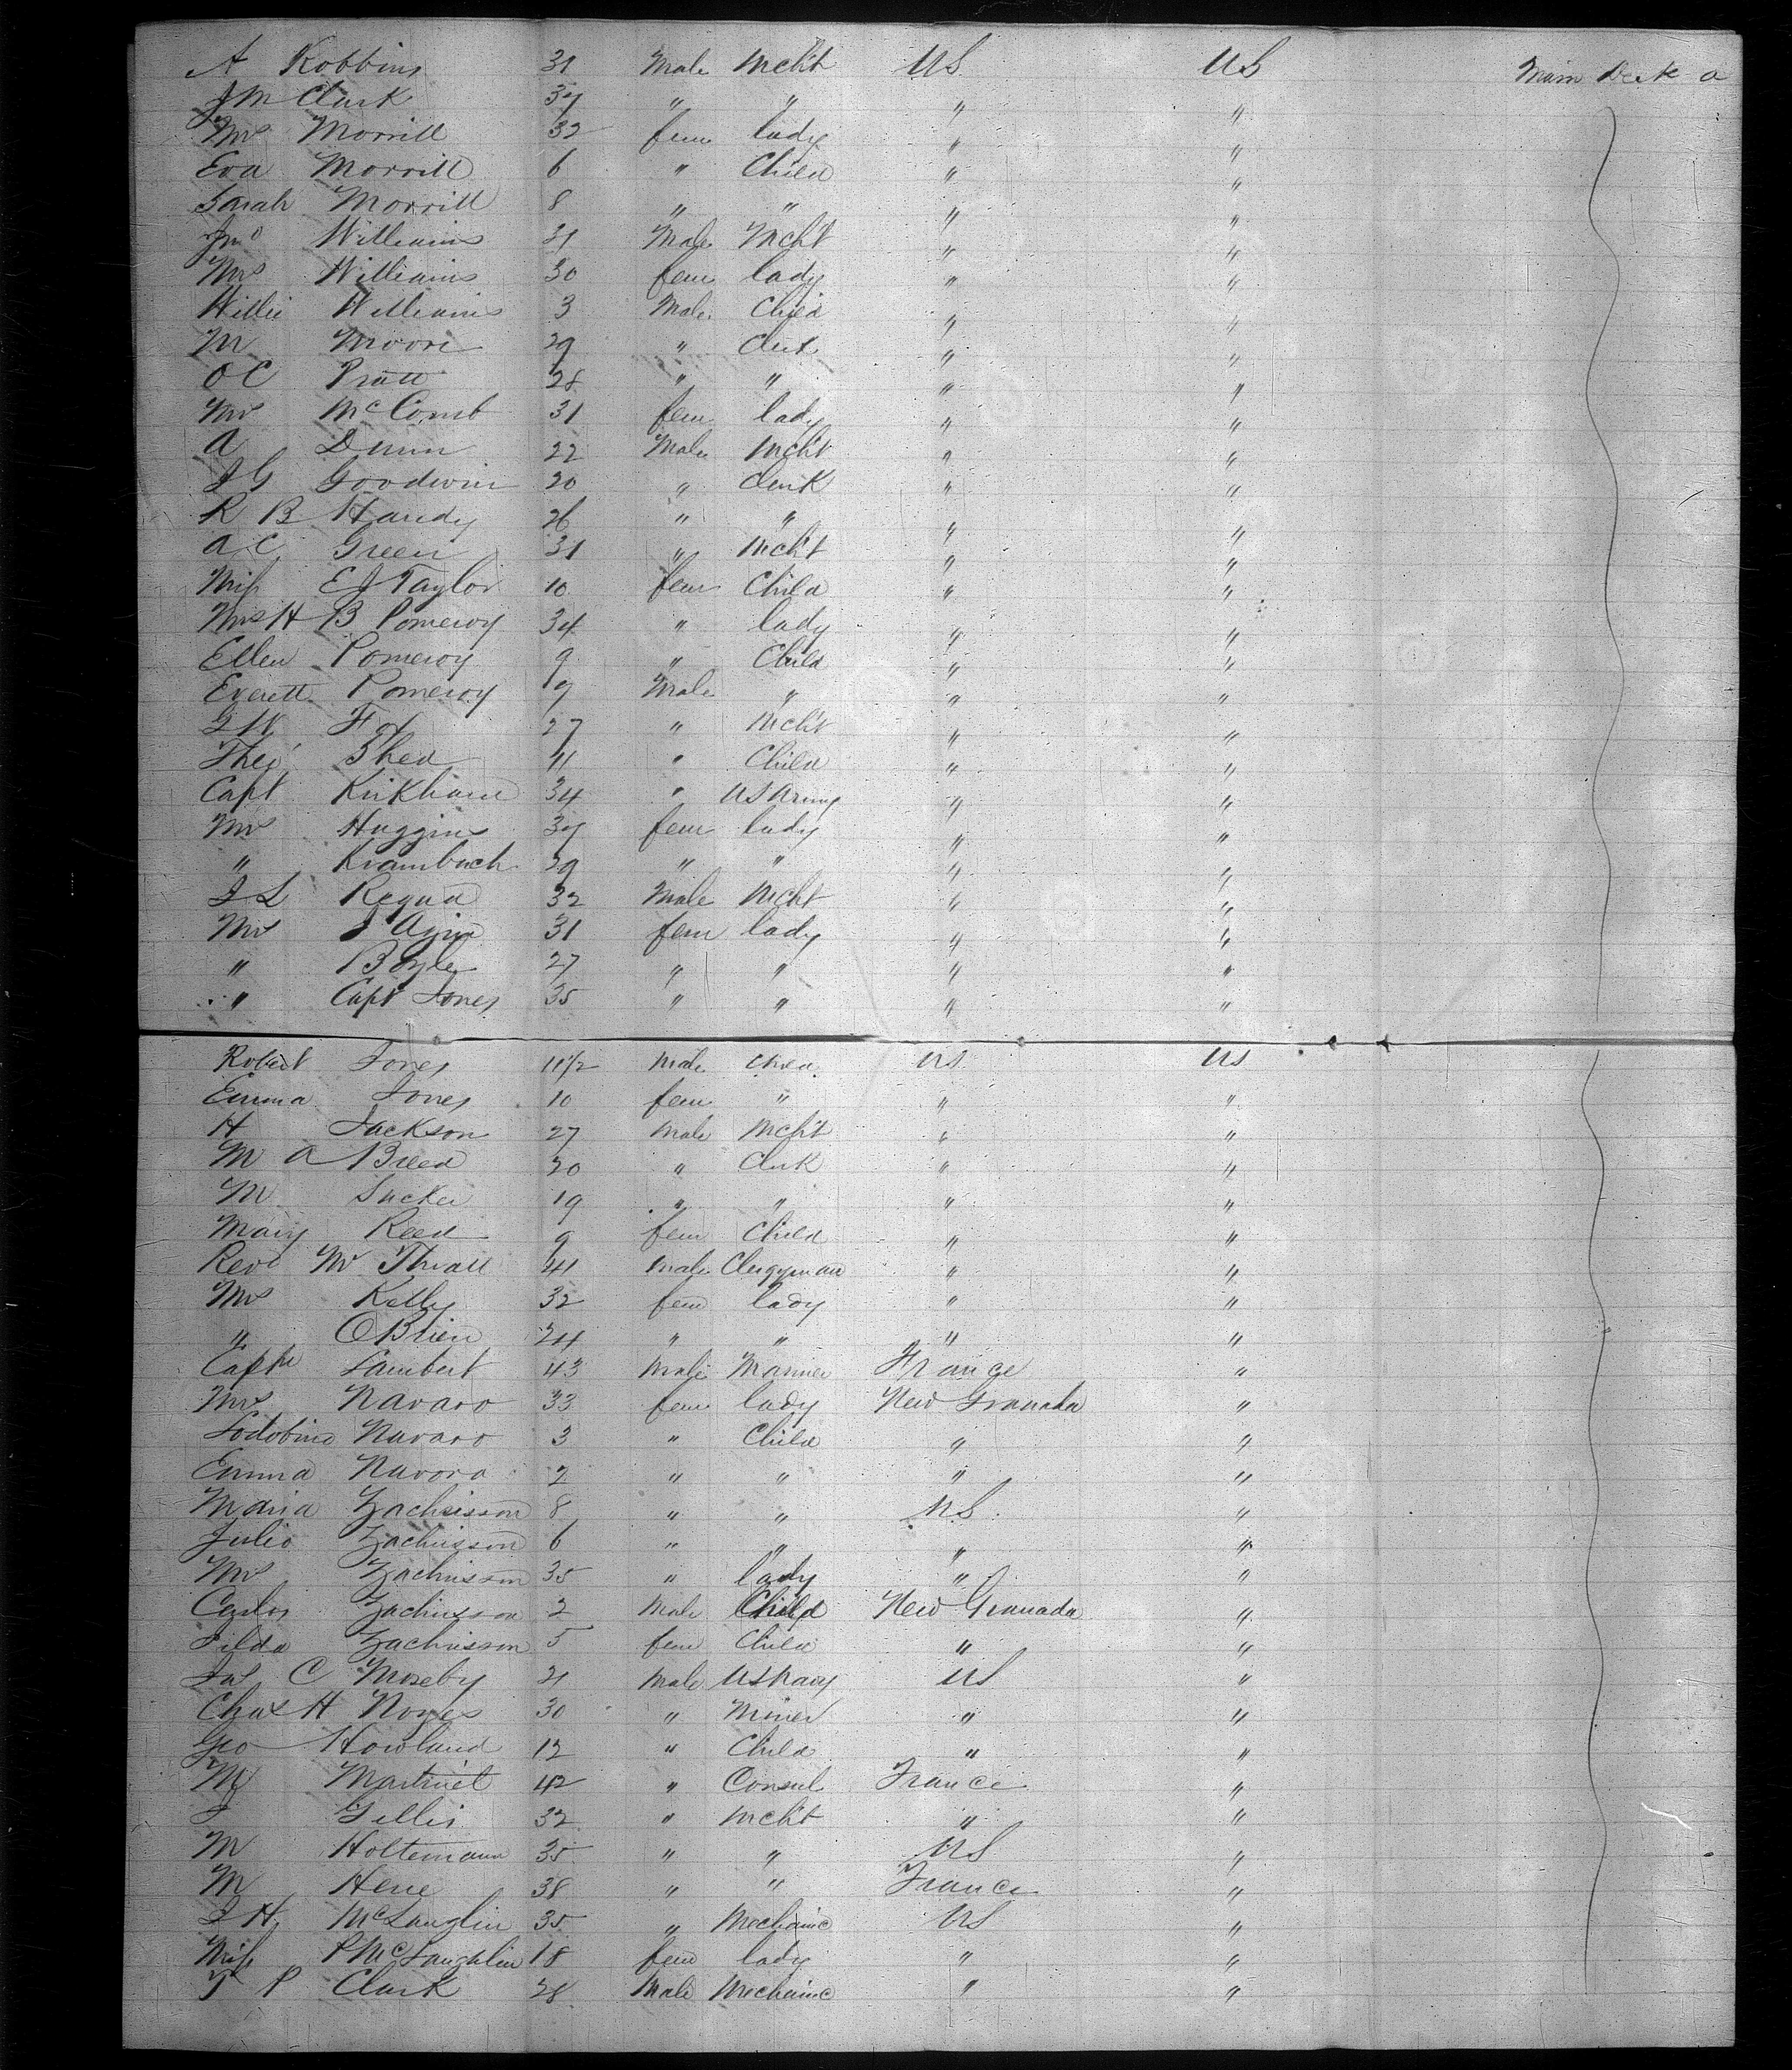 A Robbins 31 Male Mcht US US Main Deck a
J M Clark 37 " " " "
Mrs Morrill 32 fem lady " "
Eva Morrill 6 " Child " "
Sarah Morrill 8 " " " "
Jno Williams 31 Male Mcht " "
Mrs Williams 30 fem lady " "
Willie Williams 3 Male Child " "
M Moore 29 " Clerk " "
O C Pratt 28 " " " "
Mrs McComb 31 fem lady " "
A Dunn 22 Male Mcht " "
J G Goodwin 20 " Clerk " "
R B Handy 26 " " " "
A C Green 31 " Mcht " "
Miss E J Taylor 10 fem Child " "
Mrs H B Pomeroy 34 " lady " "
Ellen Pomeroy 9 " Child " "
Everett Pomeroy 9 Male " " "
G W Fox 27 " Mcht " "
Theo Shed 11 " Child " "
Capt Kirkham 34 " US Army " "
Mrs Huggins 37 fem lady " "
" Krambach 29 " " " "
J L Requa 32 Male Mcht " "
Mrs 31 fem lady " "
" Boyle 27 " " " "
" Capt Jones 35 " " " "
Robert Jones 11/2 Male Child US US
Emma Jones 10 fem " " "
H Jackson 27 Male Mcht " "
M A Breed 20 " Clerk " "
M Sucker 19 " " " "
Mary Reed 9 fem Child " "
Revd Mr Thrall 41 Male Clergyman " "
Mrs Kelly 32 fem lady " "
" O Brien 24 " " " "
Capt Lambert 43 Male Mariner France "
Mrs Navaro 33 fem lady New Granada "
Navaro 3 " Child " "
Emma Navora 2 " " " "
Maria Zachrisson 8 " " US "
Julio Zachrisson 6 " " " "
Mrs Zachrisson 35 " lady " "
Carlos Zachrisson 2 Male Child New Granada "
Tilda Zachrisson 5 fem Child " "
Jas C Moseby 21 Male US Navy US "
Chas H Noyes 30 " Miner " "
Geo Howland 12 " Child " "
M Martinet 42 " Consul France "
J Gillis 32 " Mcht " "
M Holtemann 35 " " US "
M Hene 38 " " France "
J H McLauglin 35 " Mechainc US "
Miss P McLaughlin 18 fem lady " "
T P Clark 28 Male Mechainc " "